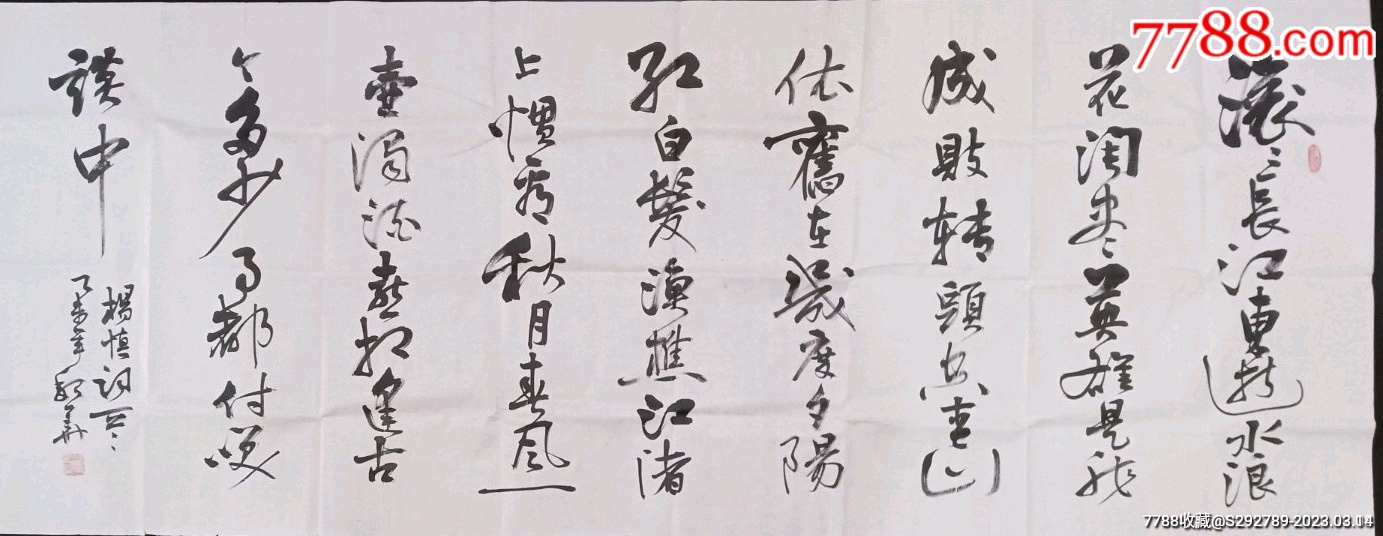 滚〻長江東逝水浪
花淘尽英雄是非
成敗转頭空青山
依舊在幾度夕陽
红白髮渔樵江渚
上惯看秋月春风一
壶濁酒喜相逢古
今多少事都付笑
談中
楊慎词云〻
乙未年
7788.com
7788收藏@S292789-2023.03.14